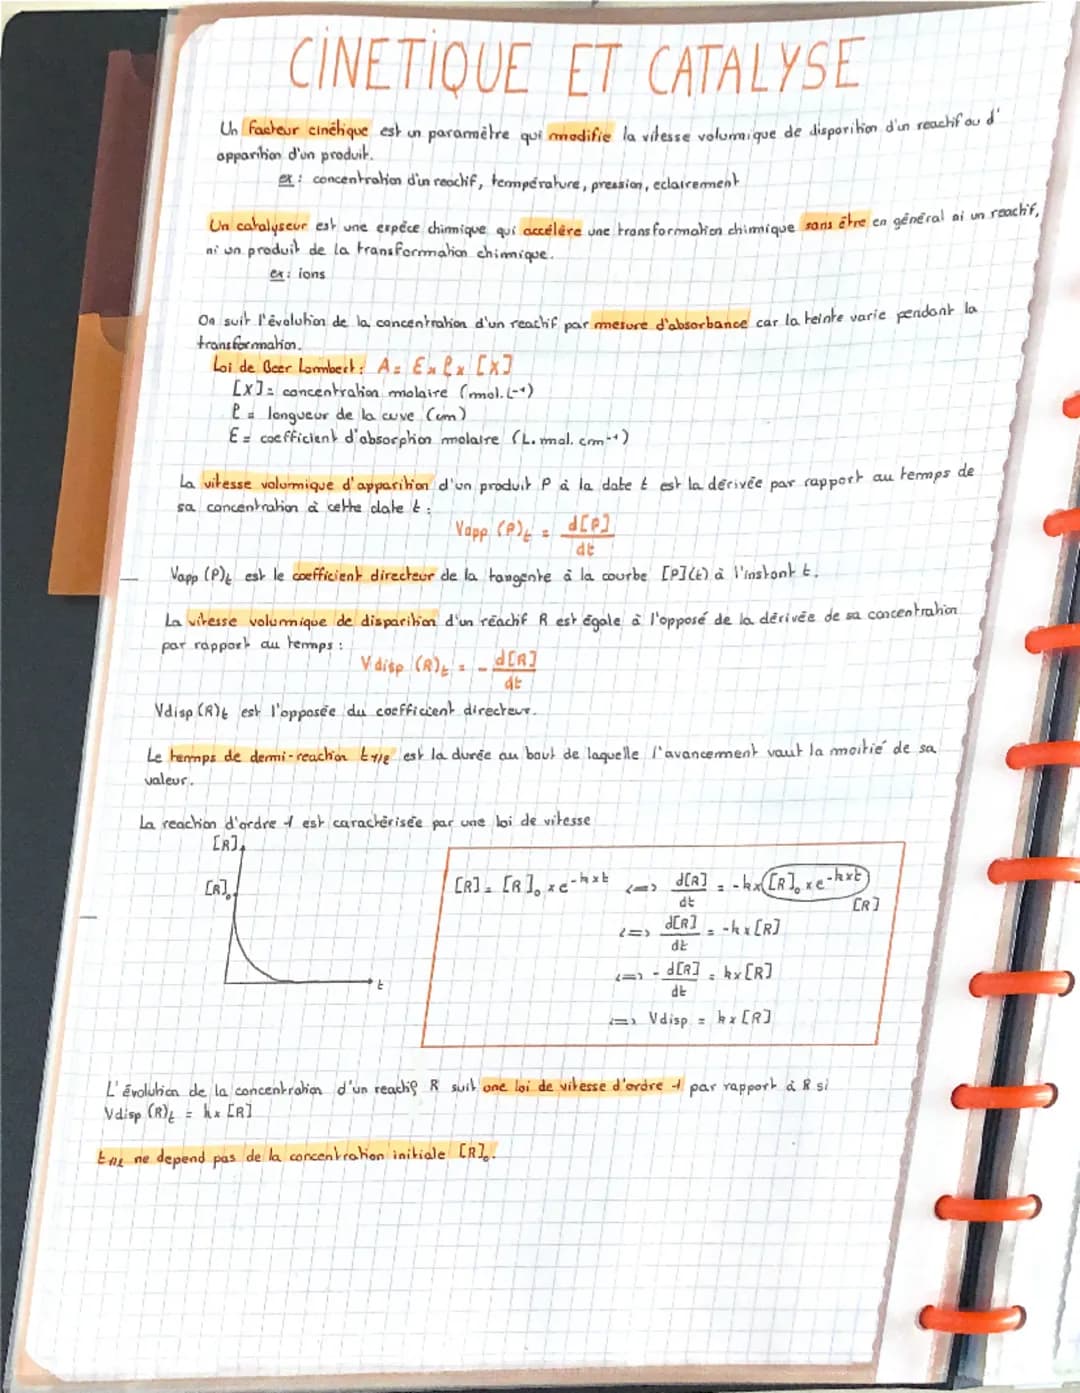 CINETIQUE ET CATALYSE
Un facteur cinétique est un parammètre qui modifie la vitesse volumique de disparition d'un reactif ou d'
apparition d'un produit.
ex : concentration d'un reactif, température, pression, eclairement
Un catalyseur est une espèce chimique qui accélère une transformation chimique sans être en général ni un reactif,
ni un produit de la transformation chimique.
ex : ions
On suit l'évolution de la concentration d'un reactif par mesure d'absorbance car la teinte varie pendant la
transformation.
Loi de Beer Lambert : A = E x l x [X]
[X] = concentration molaire (mol.L⁻¹)
l = longueur de la cuve (cm)
E = coefficient d'absorption molaire (L.mol.cm⁻¹)
La vitesse volumique d'apparition d'un produit P à la date t est la dérivée par rapport au temps de
sa concentration à cette date t :
Vapp (P)t = d[P]
dt
Vapp (P)t est le coefficient directeur de la tangente à la courbe [P](t) à l'instant t.
La vitesse volumique de disparition d'un réactif R est égale à l'opposé de la dérivée de sa concentration
par rapport au temps :
Vdisp (R)t = - d[R]
dt
Vdisp (R)t est l'opposée du coefficient directeur.
Le temps de demi-reaction t1/2 est la durée au bout de laquelle l'avancement vaut la moitié de sa
valeur.
La reaction d'ordre 1 est caractérisée par une loi de vitesse
[R]
[R]₀
t
[R] = [R]₀ x e^-kxt <=> d[R] = -kx [R]₀ x e^-kxt
dt
[R]
<=> d[R] = -k x [R]
dt
<=> - d[R] = kx [R]
dt
<=> Vdisp = k x [R]
L'évolution de la concentration d'un reactif R suit une loi de vitesse d'ordre 1 par rapport à R si
Vdisp (R)t = k x [R]
t1/2 ne depend pas de la concentration initiale [R]₀.